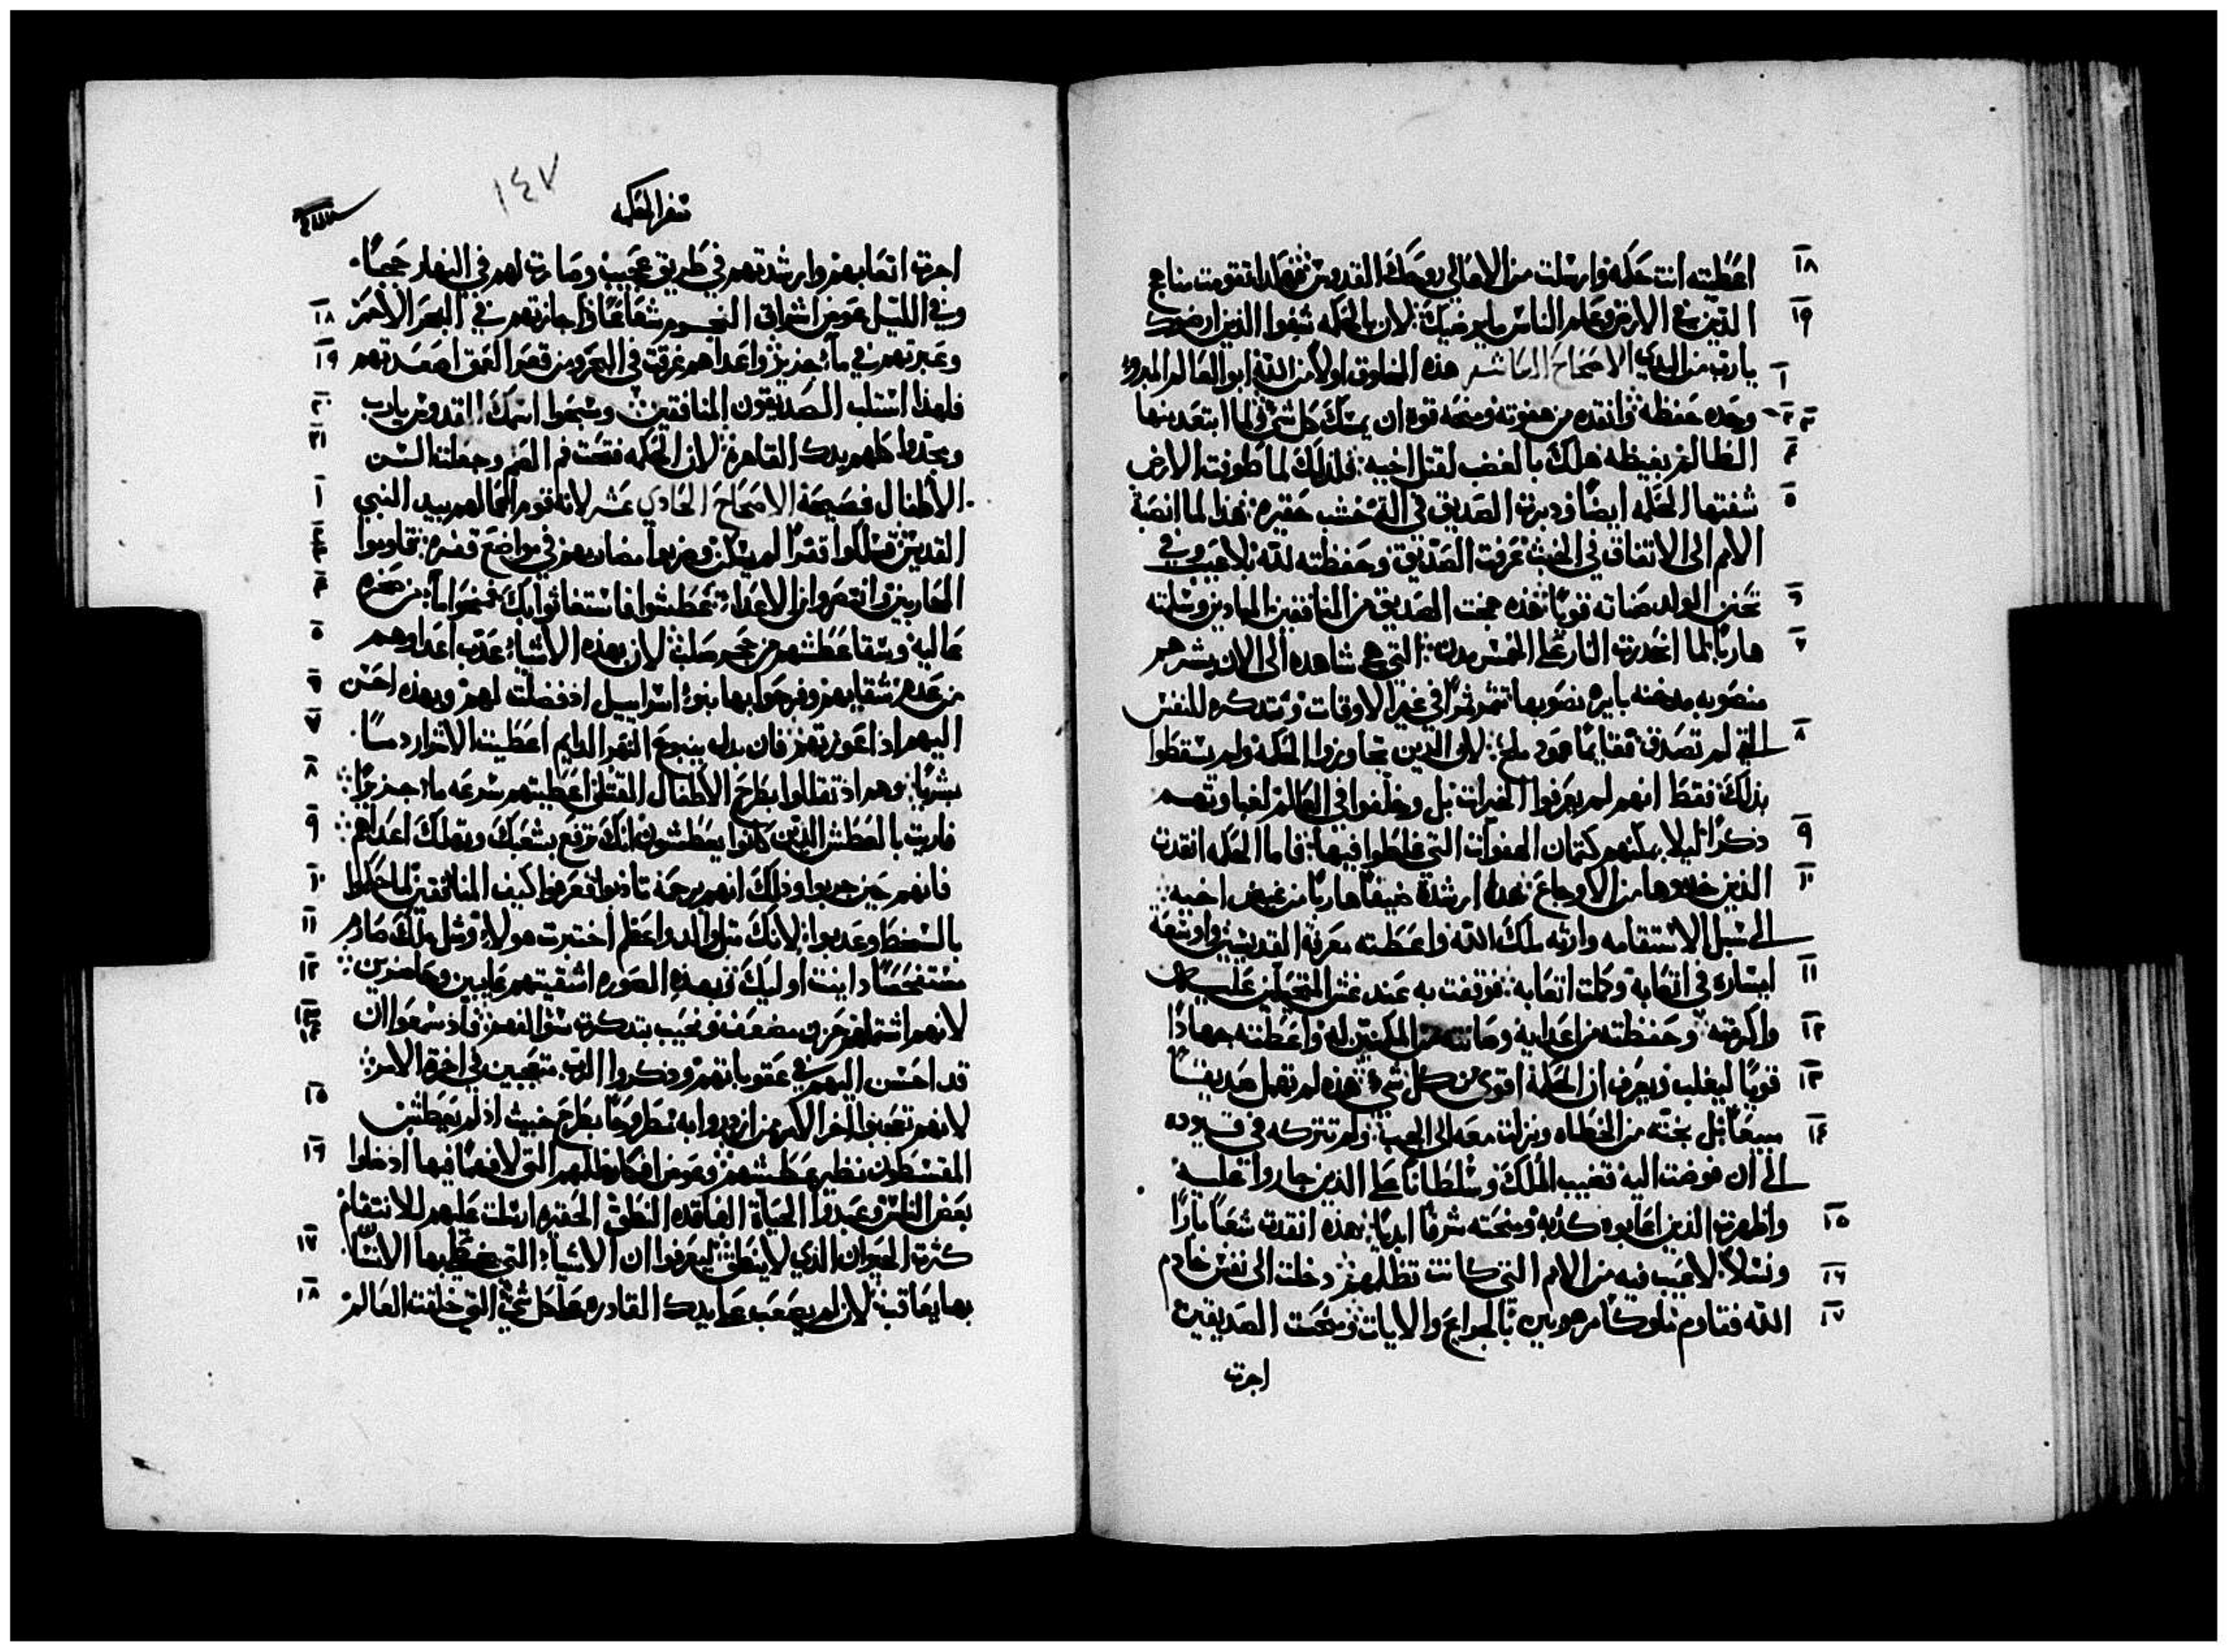 ١٨ اعطيته انت حكمه وارسلت من الاعالي روحك القدوس فهكذا تقومت مناهج
١٩ الذين في الارض وعلم الناس ما يرضيك: لان بالحكمه شفوا الذين ارضوك
١ يارب من البدي الاصحاح العاشر هذه المخلوق اولا من الله ابو العالم المبرو
٢ ٣ وحده حفظته وانقذه من هفوته ومنحه قوه ان يمسك كل شي فلما ابتعد منها
٤ الظالم بغيظه هلك بالغضب لقتل اخيه: فلذلك لما طوفت الارض
٥ شفتها الحكمه ايضا ودبرت الصديق في الة خشب حقيره: هذا لما انصبة
الامم الى الاتفاق في الخبث عرفت الصديق وحفظته لله بلا عيب وفي
٦ تحنن الولد صانته قويا: هذه نجت الصديق من المنافقين المبادين وسلمته
٧ هاربا لما انحدرت النار على الخمس مدن: التي هي شاهده الى الان بشرهم
منصوبه مدخنه بايره نصوبها تثمر ثمرا في غير الاوقات ومتذكره للنفس
٨ التي لم تصدق قفايما عمود ملح: لان الذين تجاوزوا الحكمه ولم يسقطوا
بذلك فقط انهم لم يعرفوا الخيرات بل وخلفوا في العالم لغباوتهم
٩ ذكرا ليلا يمكنهم كتمان الهفوات التي غلطوا فيها: فاما الحكمه انقذت
١٠ الذين خدموها من الاوجاع هذه ارشدة ضيفا هاربا من غيض اخيه
الى سبل الاستقامه وارته ملك الله واعطته معرفة القديسين واوسعه
١١ ايساره في اتعابه وكملت اتعابه: فوقفت به عند غش المتحيلين عليه
١٢ واكرمته وحفظته من اعدايه وصانته من المكمنين له واعطته جهادا
١٣ قويا ليغلب ويعرف ان الحكمة اقوى من كل شي: هذه لم تهمل صديقا
١٤ مبيعا بل نجته من الخطاه ونزلت معه الى الجب ولم تتركه في قيوده
الى ان فوضت اليه قضيب الملك وسلطانا على الذين جاروا عليه
١٥ واظهرت الذين اعابوه كذبه ومنحته شرفا ابديا: هذه انقذت شعبا بارا
١٦ ونسلا لا عيب فيه من الامم التي كانت تظلمهم دخلت الى نفس خادم
١٧ الله فقاوم ملوكا مرهوبين بالجرايح والايات ومنحت الصديقين
اجرت
١٤٧
سفر الحكمه
اجرت اتعابهم وارشدتهم في طريق عجيب وصارت لهم في النهار حجبا
١٨ وفي الليل عوض اشراق النجوم شعاعا اذ اجازتهم في البحر الاحمر
١٩ وعبرتهم في ماء جزيل واعداهم غرقت في البحر ومن قعر العمق اصعدتهم
٢٠ فلهذا استلب الصديقون المنافقين وسبحوا اسمك القدوس يارب
٢١ ومجدوا كلهم يدك القاهرة لان الحكمه فتحت فم الصم وجعلت السن
١ الاطفال فصيحة الاصحاح الحادي عشر لانه قوم اعمالهم بيد النبي
القديس فسلكوا قفرا لم يسكن وضربوا مضاربهم في مواضع قفره: تحاربوا
٤ المحاربين وانتصروا من الاعداء: عطشوا فاستغاثوا بك فمنحوا ماء من صخره
٥ عاليه وسقا عطشهم من حجر صلب: لان بهذه الاشياء عذب اعداوهم
٦ من عدم سقايهم وفرحوا بها بنوا اسراييل اذ فضلت لهم وبهذه احسن
٧ اليهم اذ اعوزتهم فان بدل ينبوع النهر الدايم اعطيت الاشرار دما
٨ بشريا: وهم اذ تقللوا بطرح الاطفال القتلى اعطيتهم بسرعه ماء جزيلا
٩ فاريت بالعطش الذين كانوا يعطشون انك ترفع شعبك وتهلك اعداهم
١٠ فانهم حين جربوا وذلك انهم برحمة تادبوا فعرفوا كيف المنافقين لما حكموا
١١ بالسخط وعذبوا: لانك مثل والد واعظ اختبرت هولاء ومثل ملك صارم
١٢ مستفحصا داينت اوليك: وبهذه الصوره اشقيتهم غايبين وحاضرين
١٣ ١٤ لانهم اشتملهم حزن مضعف ونحيب بتذكرة سوالفهم: فاذ سمعوا ان
قد احسن اليهم في عقوباتهم وذكروا الرب متعجبين في اخرة الامر
١٥ لانهم تعجبوا اخر الامر من ازدروا به مطروحا بطرح خبيث اذ لم يعطش
١٦ المقسطون نظير عطشهم وعوض افكار ظلمهم التي لا فهما فيها اذ ضلوا
بعض الناس وعبدوا الحياة الفاقده النطق الحقيره ارسلت عليهم للانتقام
١٧ كثرة الحيوان الذي لا ينطق ليعرفوا ان الاشياء التي يخطي بها الانسان
١٨ بها يعاقب: لان لم يصعب على يدك القادره على كل شي التي خلقت العالم